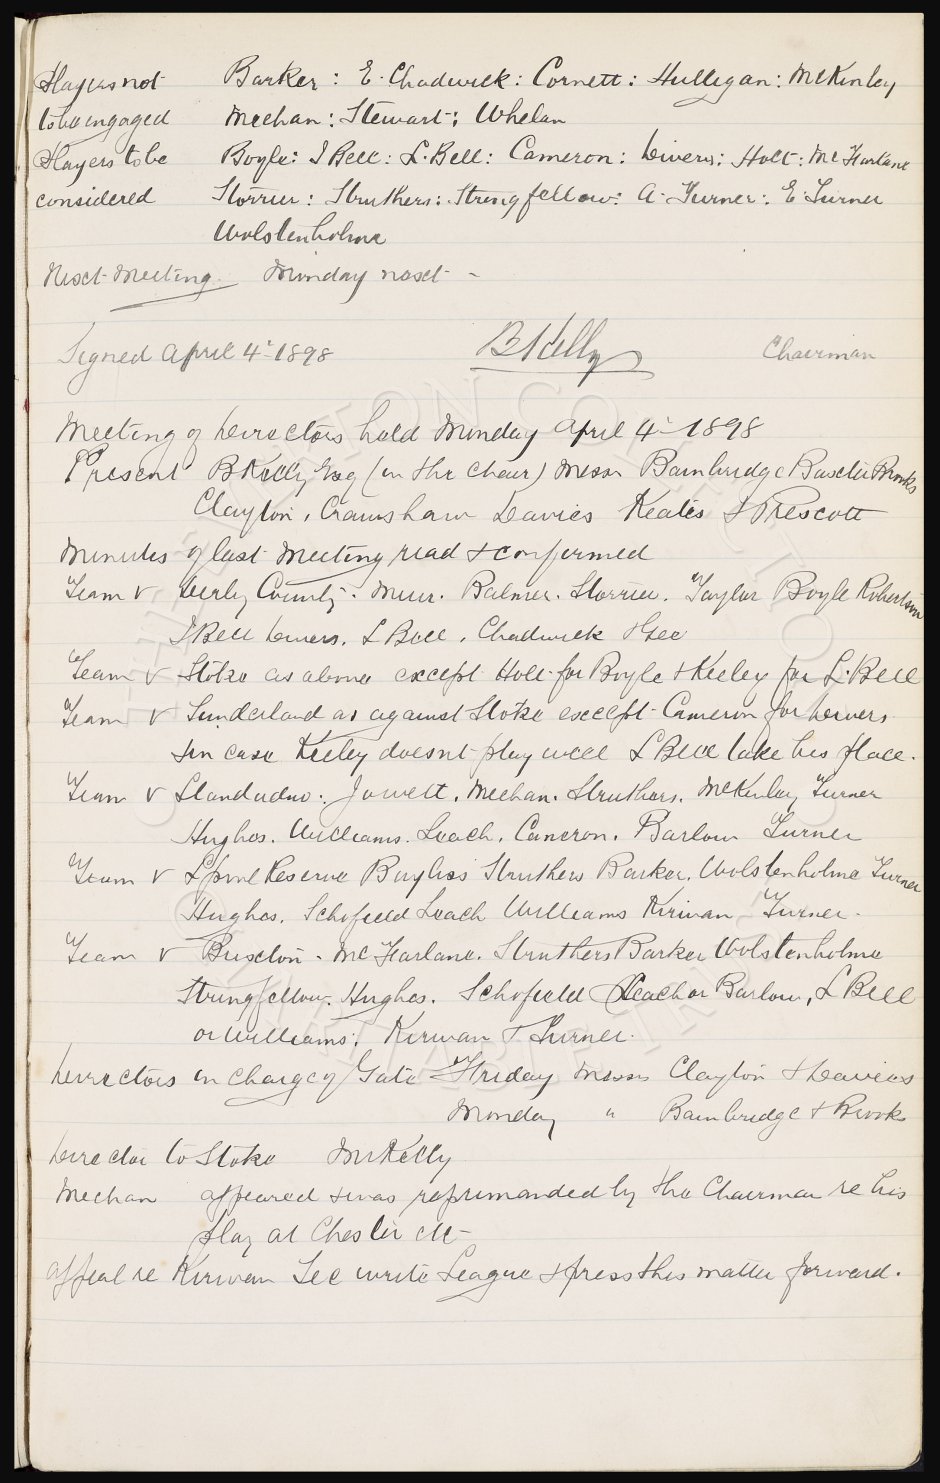 Players not Barker: E. Chadwick: Cornett: Hulligan: McKinley
to be engaged Meehan: Stewart: Whelan
Players to be Boyle: J Bell: L. Bell: Cameron: Divers: Holt: McFarlane
considered Storrier: Struthers: Stringfellow: A. Turner: E. Turner
Wolstenholme
Next Meeting Monday next -
Signed April 4th 1898 B Kelly Chairman
Meeting of Directors held Monday April 4th 1898
Present B Kelly Esq (in the chair) Messrs Bainbridge Baxter Brooks
Clayton, Cranshaw Davies Keates & Prescott
Minutes of last Meeting read & confirmed
Team v Derby County. Muir. Balmer. Storrier. Taylor Boyle Robertson
J Bell Divers. L Bell. Chadwick & Gee
Team v Stoke as above except Holt for Boyle & Keeley for L. Bell
Team v Sunderland as against Stoke except Cameron for Divers
& in case Keeley doesnt play well L Bell take his place.
Team v Llandudno. Jowett. Meehan. Struthers. McKinley Turner
Hughes. Williams. Leach. Cameron. Barlow Turner
Team v Lpool Reserve Struthers Barker. Wolstenholme Turner
Hughes. Schofield Leach Williams Kirwan Turner.
Team v Buxton - McFarlane. Struthers Barker Wolstenholme
Stringfellow. Hughes. Schofield Leach or Barlow, L Bell
or Williams. Kirwan & Turner.
Directors in charge of Gate Friday Messrs Clayton & Davies
Monday " Bainbridge & Brooks
Director to Stoke Mr Kelly
Meehan appeared & was reprimanded by the Chairman re his
play at Chester etc
Appeal re Kirwan Sec write League & press this matter forward.
EVERTON COLLECTION
CHARITABLE TRUST